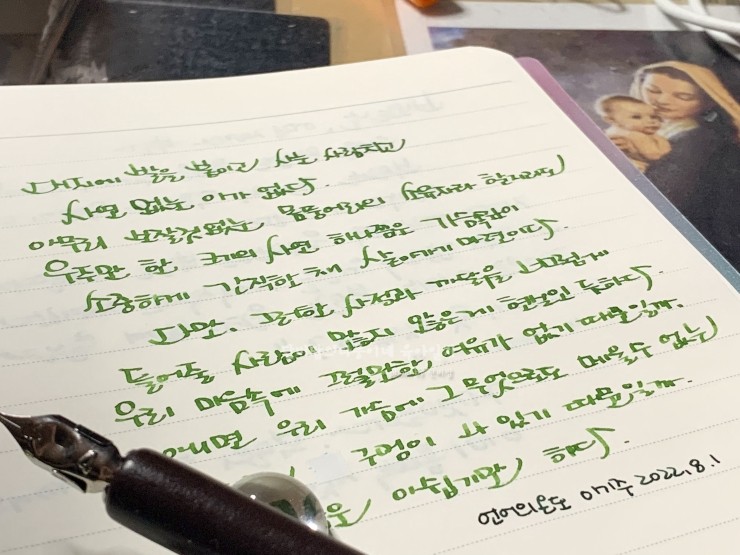 대지에 발을 붙이고 사는 사람치고
사연 없는 이가 없다.
아무리 보잘것없는 몸뚱어리의 소유자라 할지라도
우주만 한 크기의 사연 하나쯤은 가슴속에
소중하게 간직한 채 살아가기 마련이다.
다만, 그러한 사정과 까닭을 너그럽게
들어줄 사람이 많지 않은 게 현실인 듯하다.
우리 마음속에 그럴만한 여유가 없기 때문일까.
아니면 우리 가슴에 그 무엇으로도 메울 수 없는
구멍이 나 있기 때문일까.
아쉽기만 하다.
언어의온도 이기주 2022.8.1